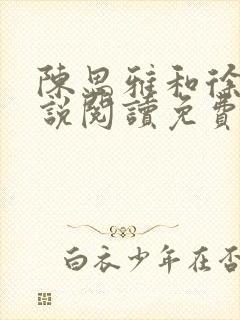 陳思雅和徐
說閱讀免費
白衣少年在否